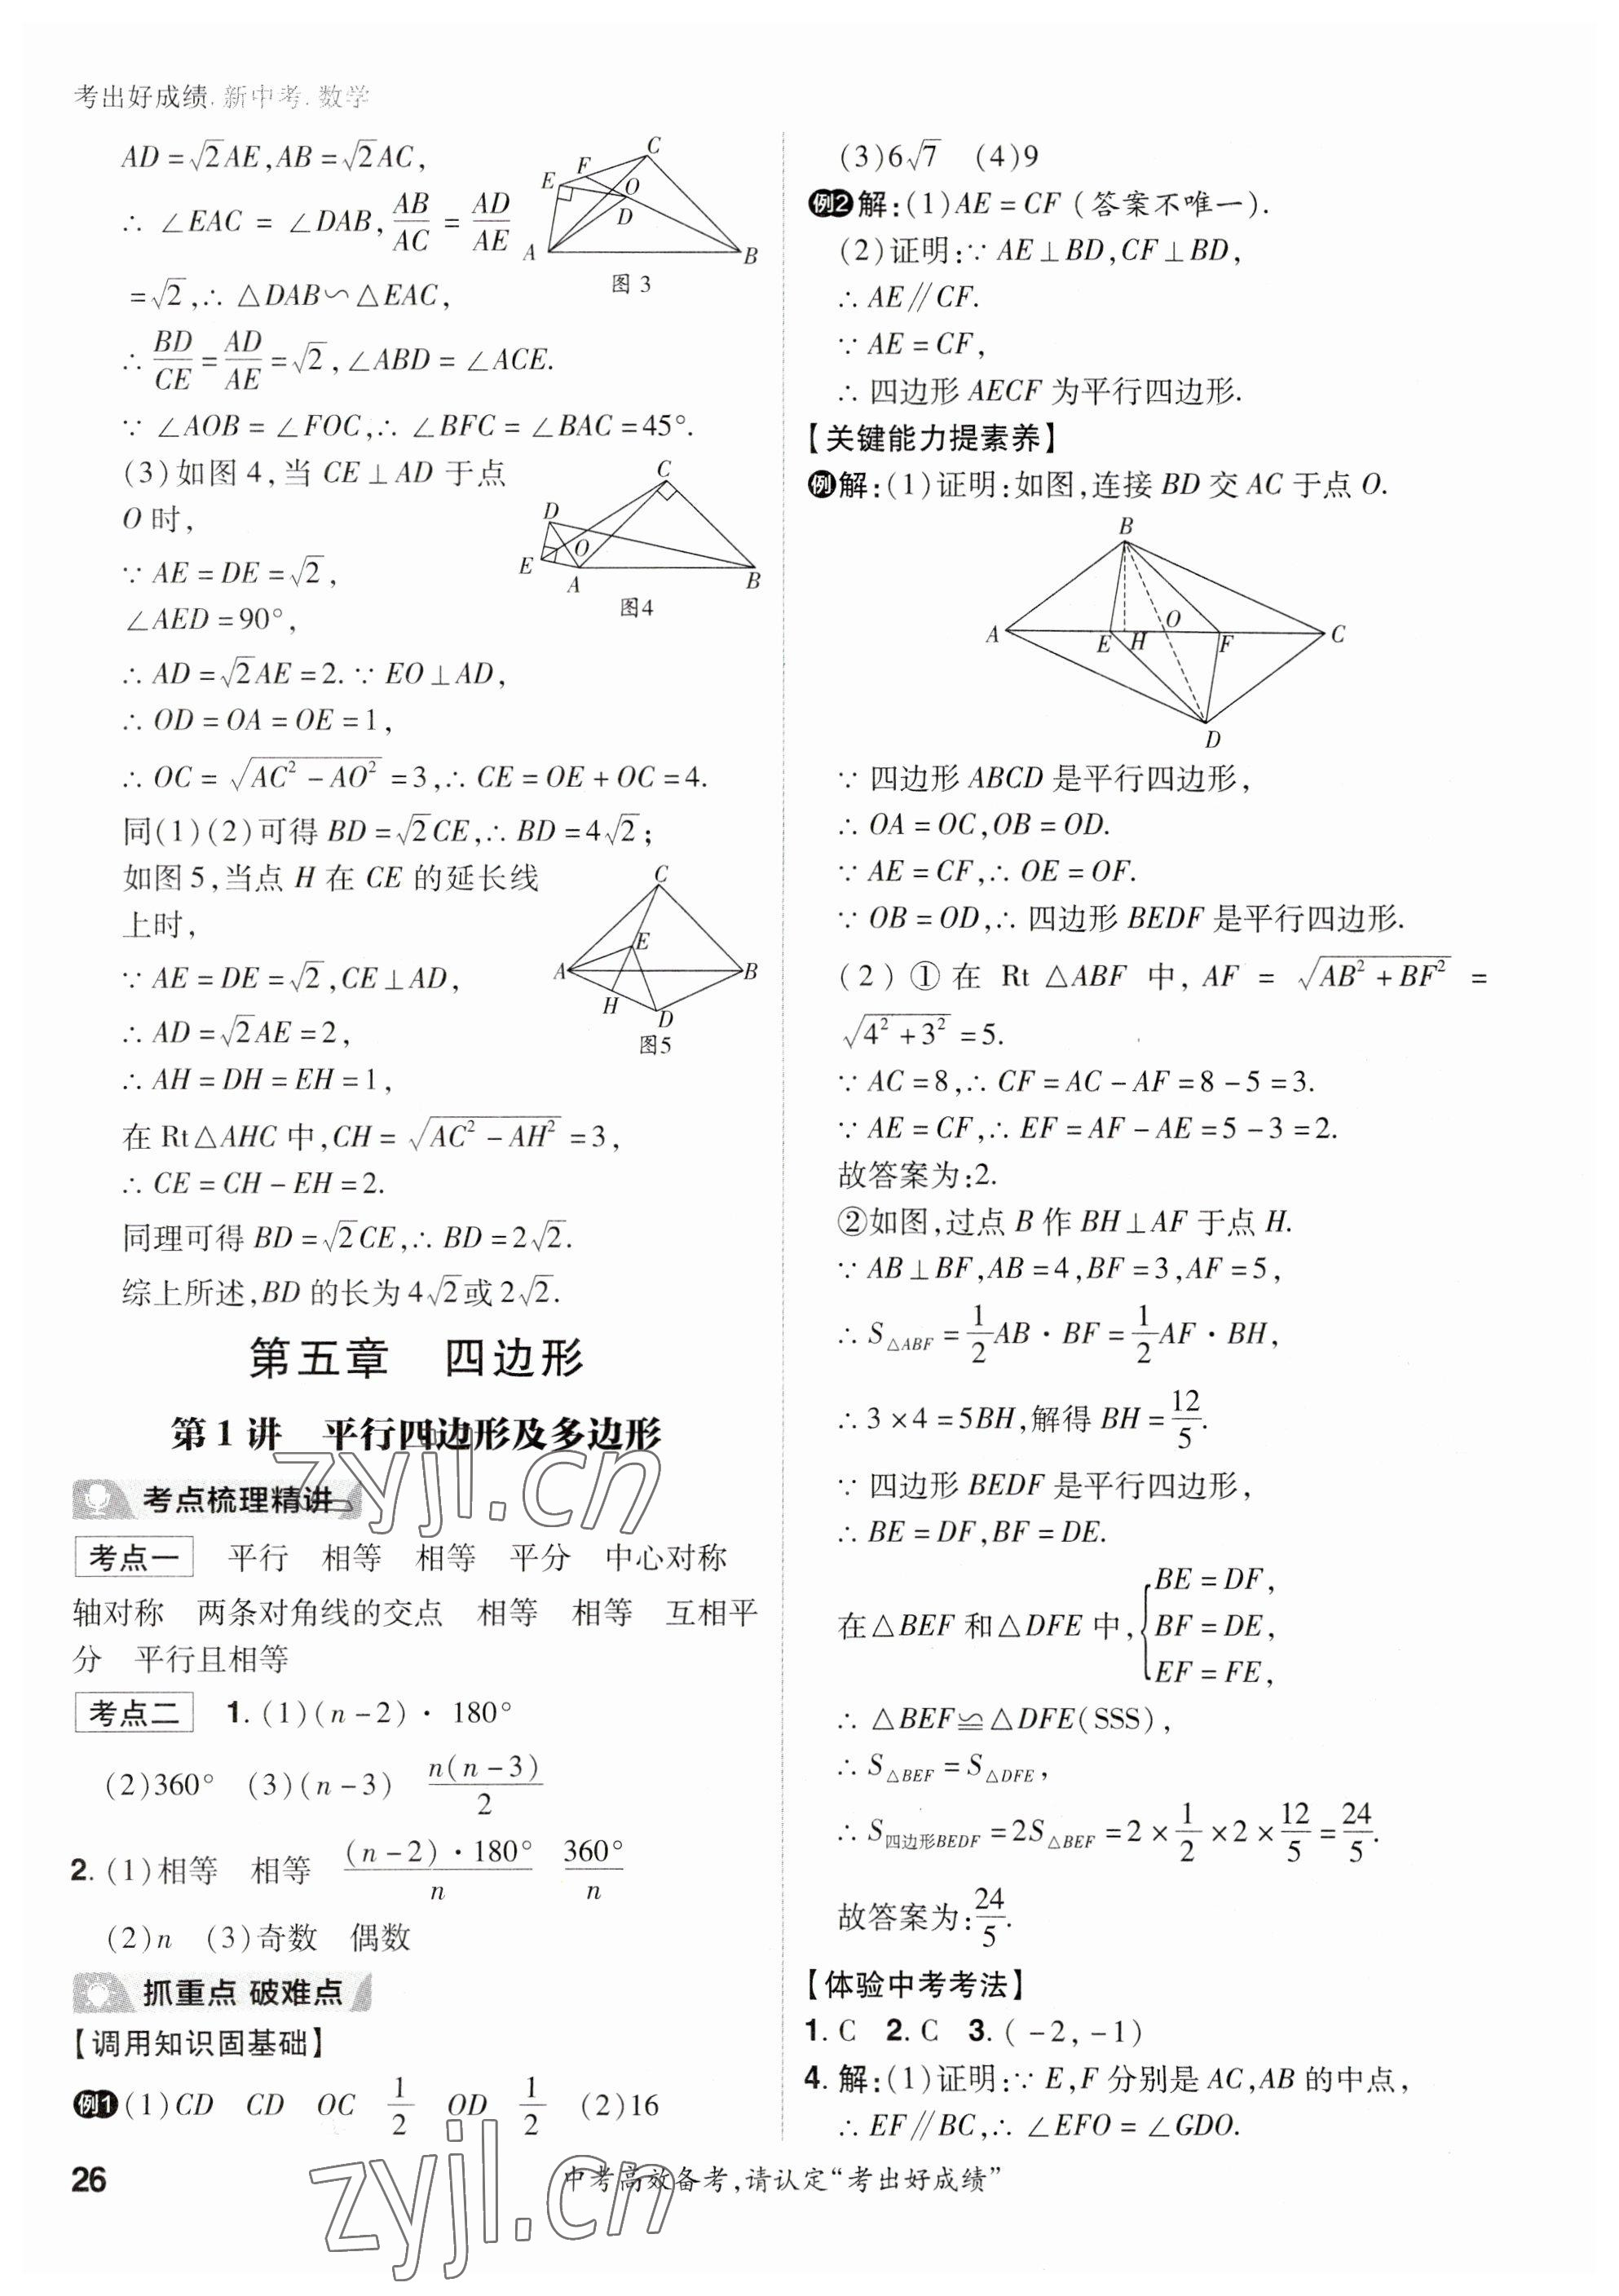 考出好成绩.新中考.数学
AD=√2AE,AB=√2AC,
∴ ∠EAC = ∠DAB, AB/AC = AD/AE
=√2,∴ △DAB∽△EAC,
∴ BD/CE = AD/AE = √2, ∠ABD = ∠ACE.
∵ ∠AOB = ∠FOC,∴ ∠BFC = ∠BAC = 45°.
C
F
E
O
D
A
B
图 3
(3)如图4,当 CE⊥AD 于点
O 时,
∵ AE = DE = √2,
∠AED = 90°,
C
D
O
E
A
B
图4
∴ AD = √2AE = 2. ∵ EO⊥AD,
∴ OD = OA = OE = 1,
∴ OC = √(AC²-AO²) = 3,∴ CE = OE + OC = 4.
同(1)(2)可得 BD = √2CE,∴ BD = 4√2;
如图5,当点 H 在 CE 的延长线
上时,
∵ AE = DE = √2,CE⊥AD,
∴ AD = √2AE = 2,
∴ AH = DH = EH = 1,
C
E
A
B
H
D
图5
在 Rt△AHC 中,CH = √(AC²-AH²) = 3,
∴ CE = CH - EH = 2.
同理可得 BD = √2CE,∴ BD = 2√2.
综上所述,BD 的长为 4√2或 2√2.
第五章 四边形
第 1 讲 平行四边形及多边形
考点梳理精讲
考点一 平行 相等 相等 平分 中心对称
轴对称 两条对角线的交点 相等 相等 互相平
分 平行且相等
考点二 1. (1)(n-2)· 180°
(2)360° (3)(n-3) n(n-3)/2
2. (1)相等 相等 (n-2)·180°/n 360°/n
(2)n (3)奇数 偶数
抓重点 破难点
【调用知识固基础】
例1 (1)CD CD OC 1/2 OD 1/2 (2)16
(3)6√7 (4)9
例2 解:(1)AE = CF (答案不唯一).
(2)证明:∵ AE⊥BD,CF⊥BD,
∴ AE∥CF.
∵ AE = CF,
∴ 四边形 AECF 为平行四边形.
【关键能力提素养】
例 解:(1)证明:如图,连接 BD 交 AC 于点 O.
B
A
E
H
O
F
C
D
∵ 四边形 ABCD 是平行四边形,
∴ OA = OC,OB = OD.
∵ AE = CF,∴ OE = OF.
∵ OB = OD,∴ 四边形 BEDF 是平行四边形.
(2) ① 在 Rt △ABF 中, AF = √(AB²+BF²) =
√(4²+3²) = 5.
∵ AC = 8,∴ CF = AC - AF = 8 - 5 = 3.
∵ AE = CF,∴ EF = AF - AE = 5 - 3 = 2.
故答案为:2.
②如图,过点 B 作 BH⊥AF 于点 H.
∵ AB⊥BF,AB = 4,BF = 3,AF = 5,
∴ S△ABF = 1/2 AB · BF = 1/2 AF · BH,
∴ 3 × 4 = 5BH,解得 BH = 12/5.
∵ 四边形 BEDF 是平行四边形,
∴ BE = DF,BF = DE.
在△BEF 和△DFE 中,{BE = DF,
BF = DE,
EF = FE,
∴ △BEF≌△DFE(SSS),
∴ S△BEF = S△DFE,
∴ S四边形BEDF = 2S△BEF = 2 × 1/2 × 2 × 12/5 = 24/5.
故答案为:24/5.
【体验中考考法】
1. C 2. C 3. (-2,-1)
4. 解:(1)证明:∵ E,F 分别是 AC,AB 的中点,
∴ EF∥BC,∴ ∠EFO = ∠GDO.
26
中考高效备考,请认定“考出好成绩”
zyjl.cn
zyjl.cn